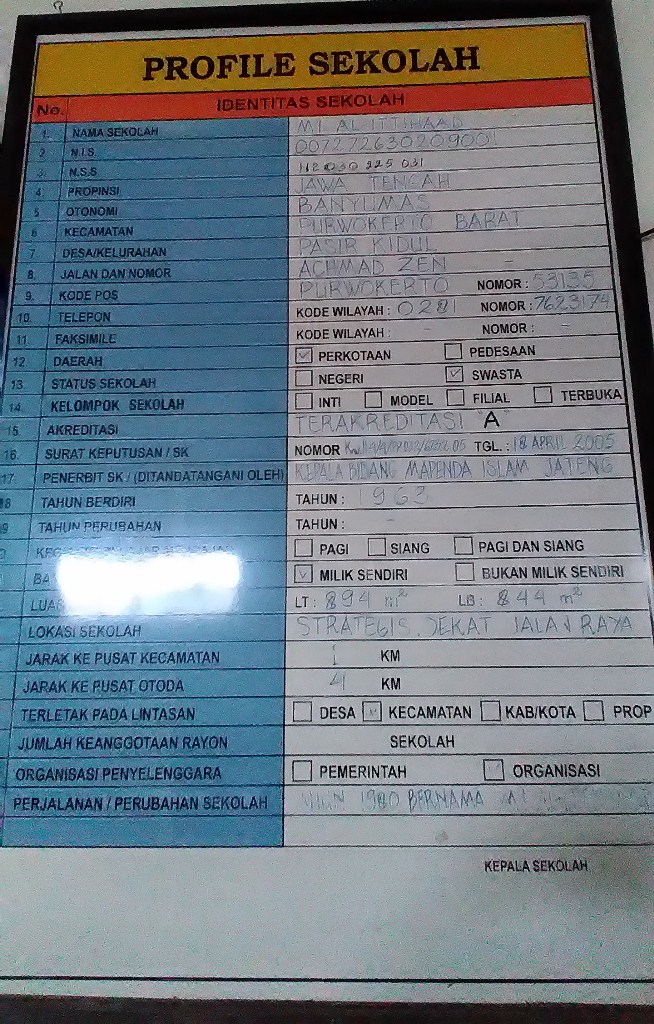 PROFILE SEKOLAH
No. IDENTITAS SEKOLAH
1. NAMA SEKOLAH MI AL ITTIHAAD
2 N.I.S
3. N.S.S 112 030 225 031
4. PROPINSI JAWA TENGAH
5 OTONOMI BANYUMAS
6 KECAMATAN PURWOKERTO BARAT
7. DESA/KELURAHAN PASIR KIDUL
8. JALAN DAN NOMOR ACHMAD ZEN -
9. KODE POS PURWOKERTO NOMOR : 53135
10. TELEPON KODE WILAYAH : 0281 NOMOR : 7623174
11. FAKSIMILE KODE WILAYAH : - NOMOR : -
12. DAERAH PERKOTAAN PEDESAAN
13. STATUS SEKOLAH NEGERI SWASTA
14. KELOMPOK SEKOLAH INTI MODEL FILIAL TERBUKA
15. AKREDITASI TERAKREDITASI "A"
16. SURAT KEPUTUSAN / SK NOMOR TGL. : 18 APRIL 2005
17. PENERBIT SK / (DITANDATANGANI OLEH) KEPALA BIDANG MAPENDA ISLAM JATENG
18 TAHUN BERDIRI TAHUN : 1963
19 TAHUN PERUBAHAN TAHUN : -
PAGI SIANG PAGI DAN SIANG
MILIK SENDIRI BUKAN MILIK SENDIRI
LUAS LT : 894 m² LB : 844 m²
LOKASI SEKOLAH STRATEGIS, DEKAT JALAN RAYA
JARAK KE PUSAT KECAMATAN 1 KM
JARAK KE PUSAT OTODA 4 KM
TERLETAK PADA LINTASAN DESA KECAMATAN KAB/KOTA PROP
JUMLAH KEANGGOTAAN RAYON SEKOLAH
ORGANISASI PENYELENGGARA PEMERINTAH ORGANISASI
PERJALANAN / PERUBAHAN SEKOLAH 1980 BERNAMA
KEPALA SEKOLAH